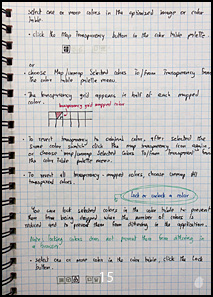 Select one or more colors in the optimized image or color
table.
• click the Map Transparency button in the color table palette.
or
• Choose Map/Unmap Selected Colors To/From Transparent from
the color table palette menu.
The transparency grid appears in half of each mapped
color.
transparency grid mapped color
• To revert transparency to original color, after selected the
same color swatch click the map transparency icon again
or choose Map/Unmap Selected Colors To/From Transparent from
the color table palette menu.
• To revert all transparency-mapped colors, choose Unmap All
Transparent Colors.
Lock or unlock a color
You can lock selected colors in the color table to prevent
them from being dropped when the number of colors is
reduced and to prevent them from dithering in the applications.
Note: locking colors does not prevent them from dithering in
a browser
• Select one or more colors in the color table, click the Lock
button.
15